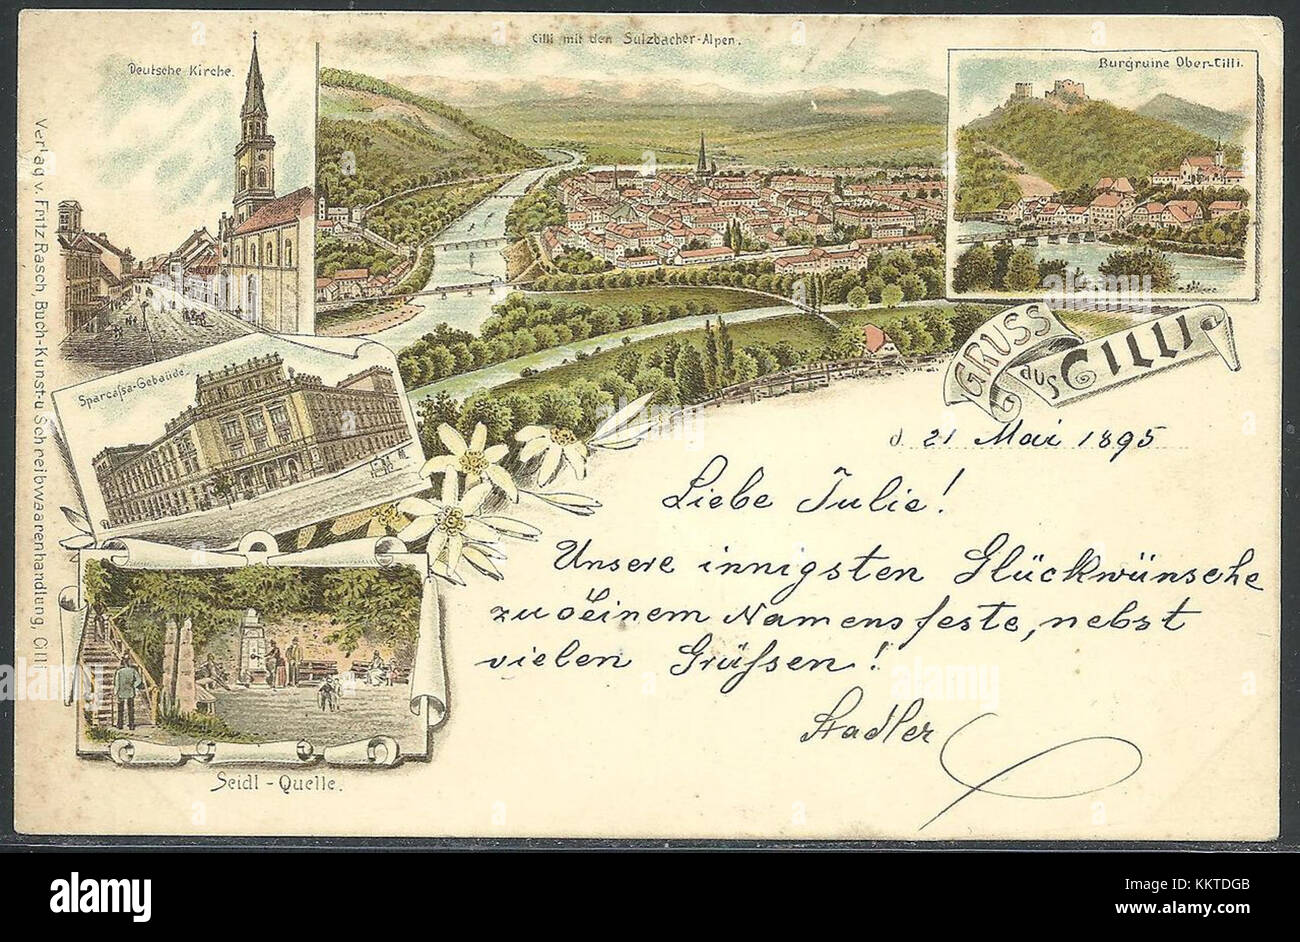 Cilli mit den Sulzbacher-Alpen.
Deutsche Kirche.
Burgruine Ober-Cilli.
Verlag v. Fritz Rasch, Buch-Kunst-u Schreibwaarenhandlung, Cilli
Sparcassa-Gebäude.
GRUSS
aus CILLI
d. 21 Mai 1895
Liebe Julie!
Unsere innigsten Glückwünsche
zu deinem Namensfeste, nebst
vielen Grüßen!
Stadler
Seidl-Quelle.
alamy
alamy
alamy
alamy
alamy
Image ID: KKTDGB
www.alamy.com